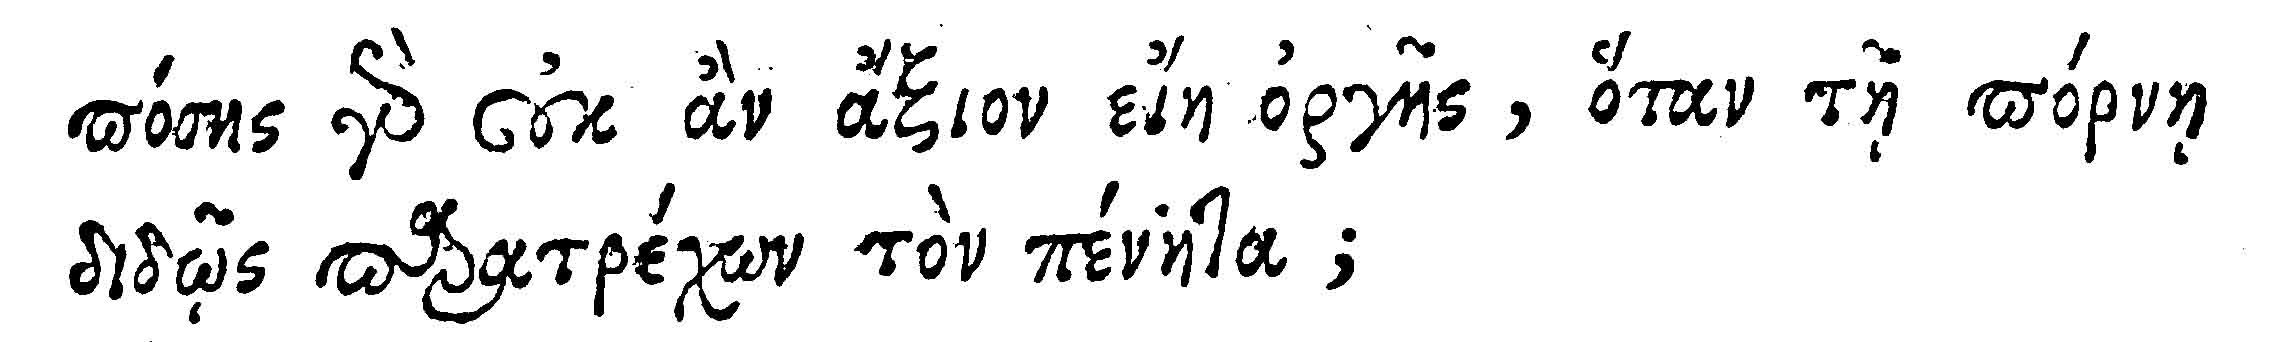 πόσης γὰρ οὐκ ἂν ἄξιον εἴη ὀργῆς, ὅταν τῇ πόρνῃ
διδῷς παρατρέχων τὸν πένητα;